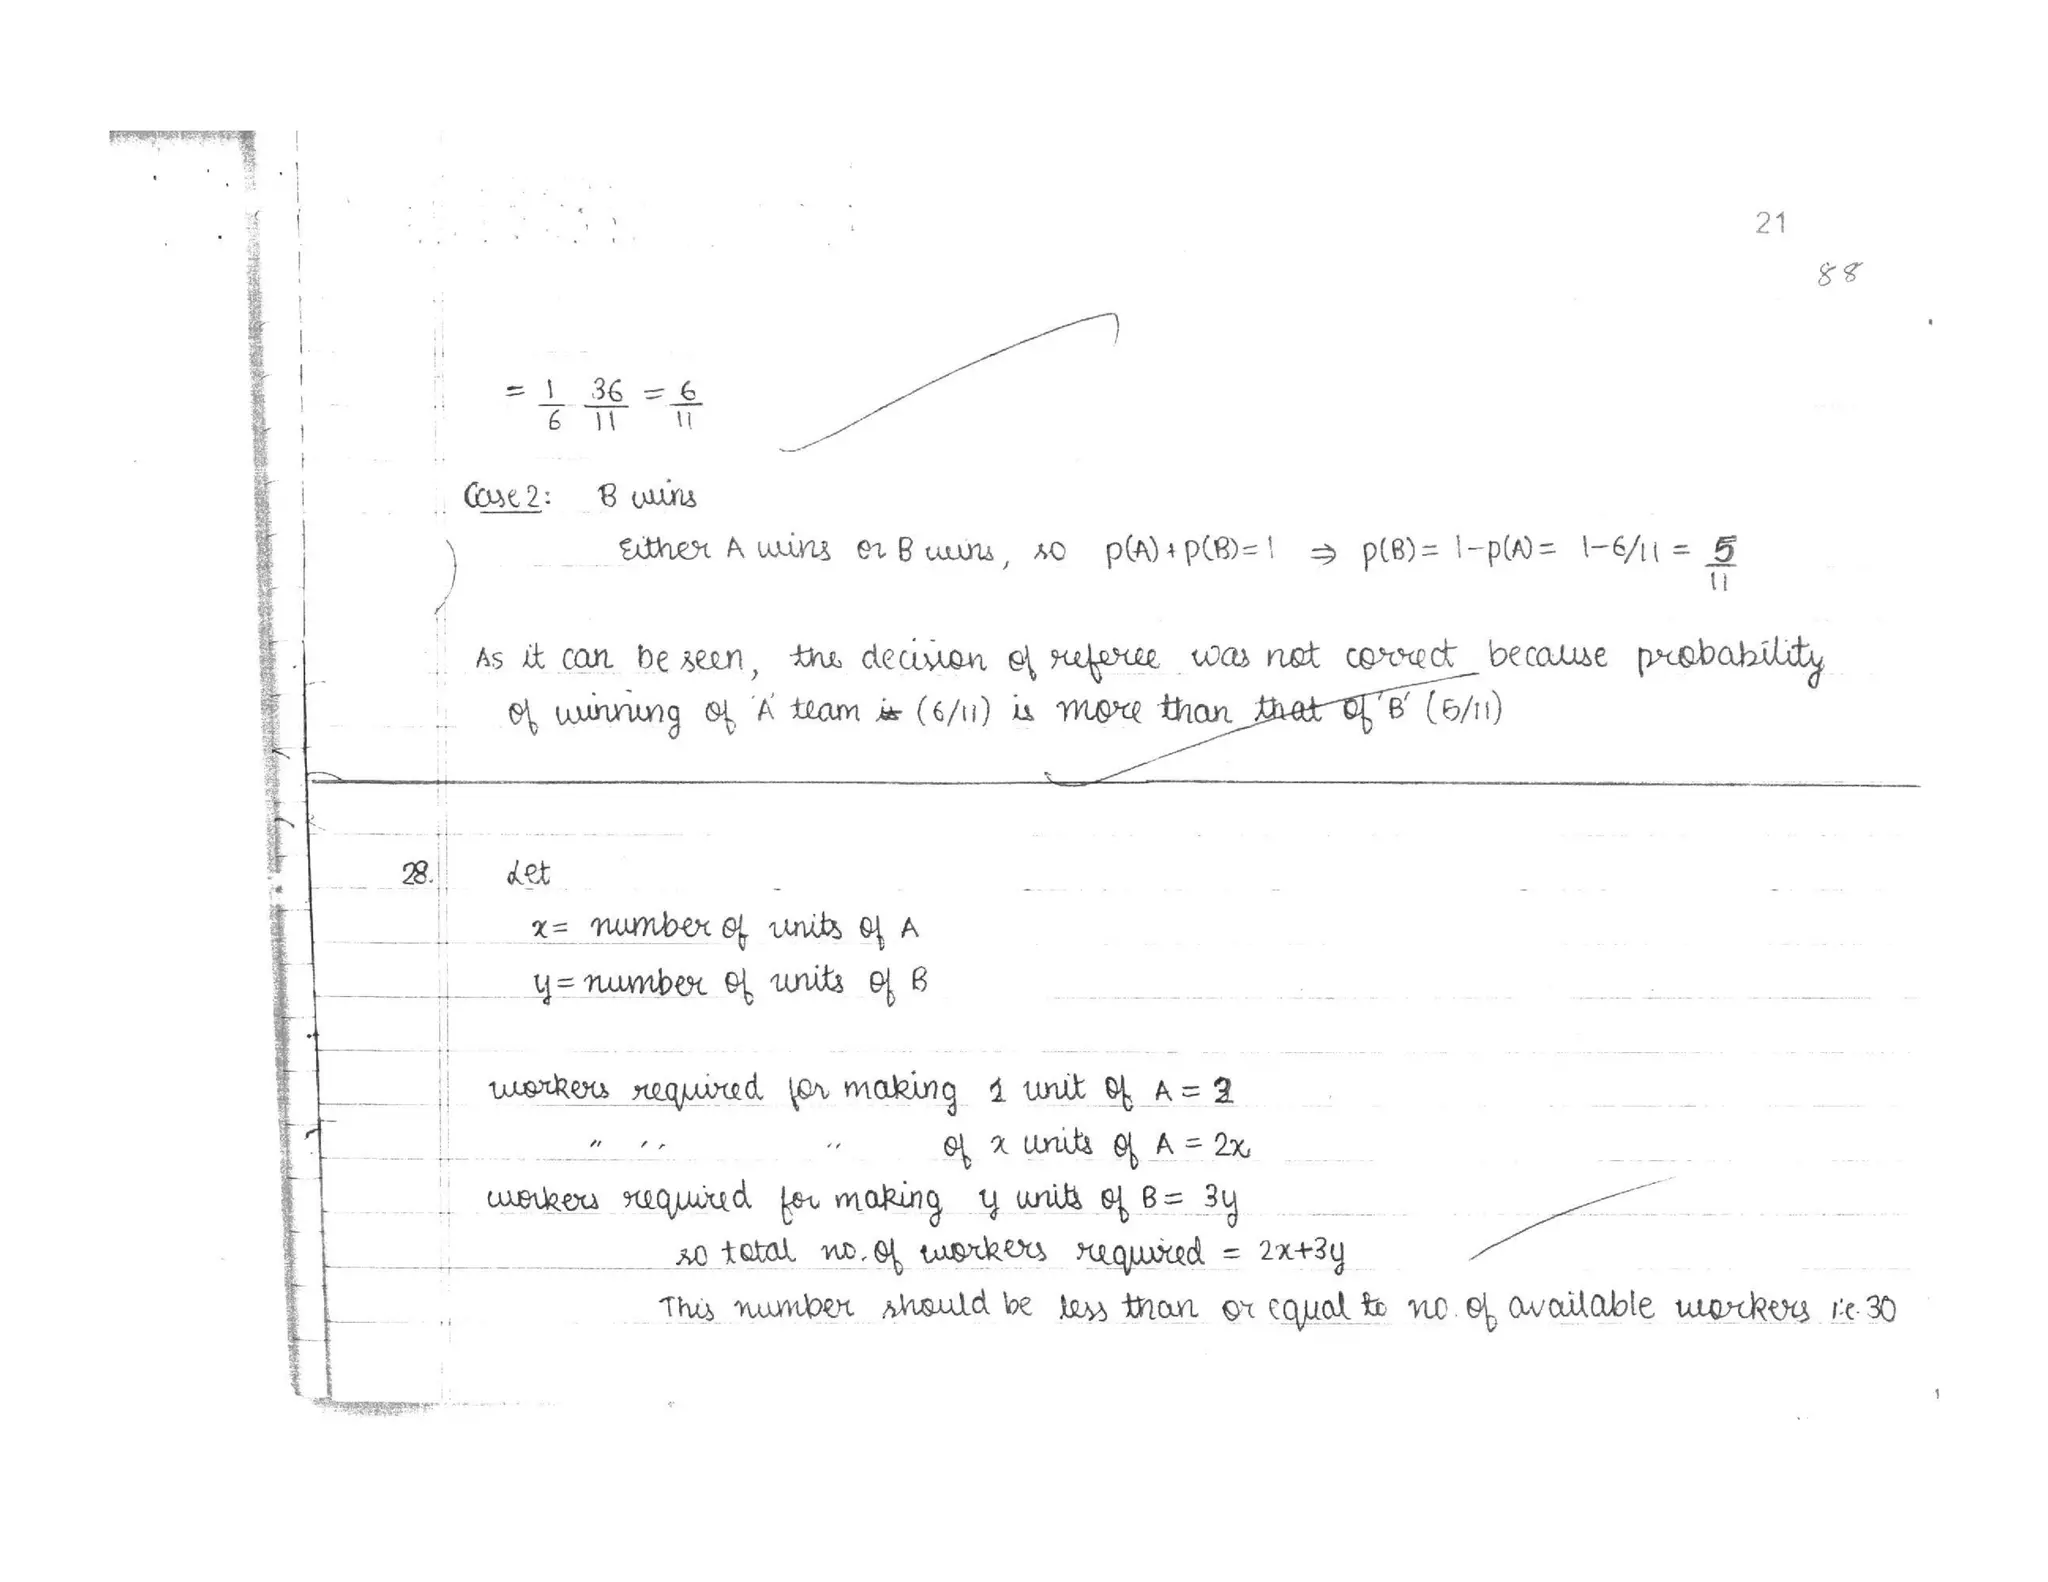 21
88
= 1/6 36/11 = 6/11
Case 2: B wins
Either A wins or B wins, so p(A)+p(B)=1 ⇒ p(B)= 1-p(A)= 1-6/11 = 5/11
As it can be seen, the decision of referee was not correct because probability
of winning of 'A' team is (6/11) is more than that of 'B' (5/11)
28. Let
x= number of units of A
y= number of units of B
workers required for making 1 unit of A = 2
" " " of x units of A = 2x
workers required for making y units of B= 3y
so total no. of workers required = 2x+3y
This number should be less than or equal to no. of available workers i.e. 30